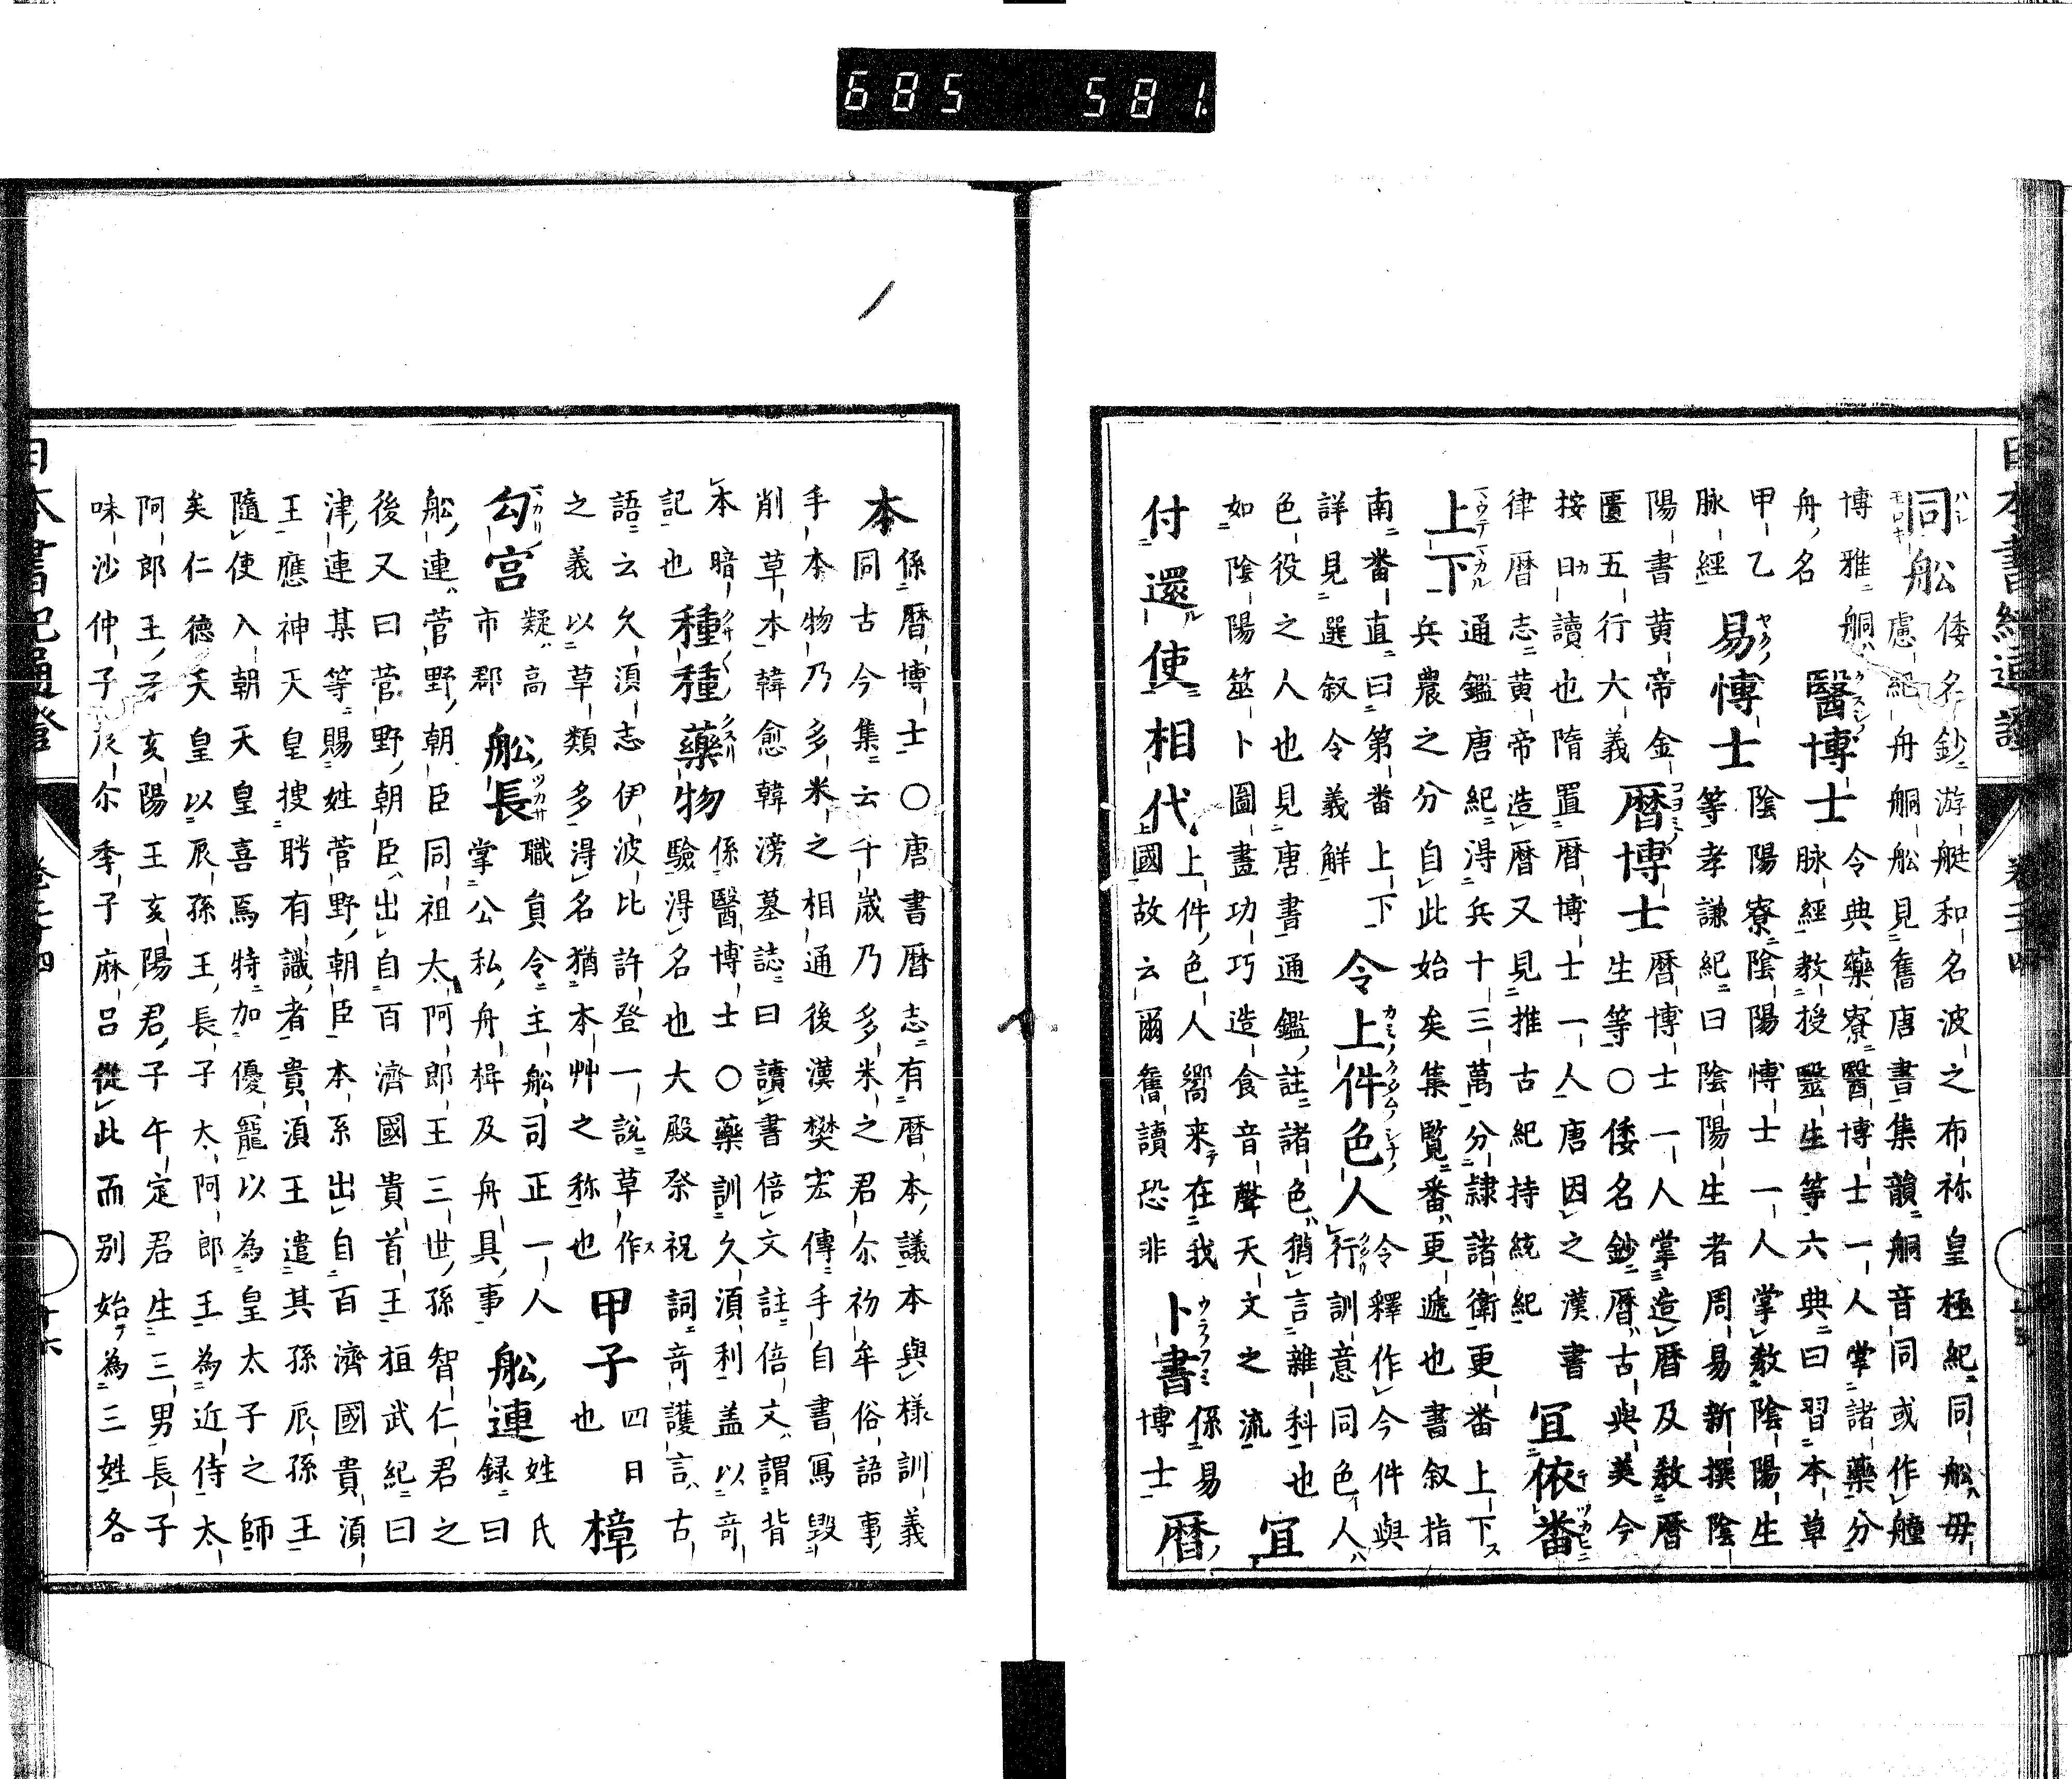 685 581
同舩倭名鈔游艇和名波之布祢皇極紀同舩毋
慮紀舟舸舩見舊唐書集韻舸音同或作艟
博雅舸舟名
醫博士令典藥寮醫博士一人掌諸藥分
脉經教授醫生等六典曰習本草
甲乙脉經
易博士陰陽寮陰陽博士一人掌教陰陽生
等孝謙紀曰陰陽生者周易新撰陰
陽書黄帝金匱五行大義
暦博士暦博士一人掌造暦及教暦
生等○倭名鈔暦古與美今
按日讀也隋置暦博士一人唐因之漢書
律暦志黄帝造暦又見推古紀持統紀
宜依番
上下通鑑唐紀得兵十三萬分隷諸衛更番上下
兵農之分自此始矣集覧番更遞也書叙指
南番直曰第番上下
詳見選叙令義解
令上件色人令釋作今件與
行訓意同色人
色役之人也見唐書通鑑註諸色猶言雜科也
如陰陽筮卜圖畫功巧造食音聲天文之流
宜
付還使相代上件色人嚮来在我
國故云爾舊讀恐非
卜書係易
博士
暦
本係暦博士○唐書暦志有暦本議本與様訓義
同古今集云千歳乃多米之君尓初牟俗語事
手本物乃多米之相通後漢樊宏傳手自書寫毀
削草本韓愈韓滂墓誌曰讀書倍文註倍文謂背
本暗記也
種種藥物係醫博士○藥訓久湏利盖以竒
驗得名也大殿祭祝詞竒護言古
語云久湏志伊波比許登一說草作
之義以草類多得名猶本艸之称也
甲子四日也
樟
勾宮疑高市郡
舩長職員令主舩司正一人
掌公私舟楫及舟具事
舩連姓氏録曰
舩連菅野朝臣同祖太阿郎王三世孫智仁君之
後又曰菅野朝臣出自百濟國貴首王桓武紀曰
津連某等賜姓菅野朝臣本系出自百濟國貴湏
王應神天皇搜聘有識者貴湏王遣其孫辰孫王
隨使入朝天皇喜焉特加優寵以為皇太子之師
矣仁德天皇以辰孫王長子太阿郎王為近侍太
阿郎王子亥陽王亥陽君子午定君生三男長子
味沙仲子辰尓季子麻呂從此而別始為三姓各